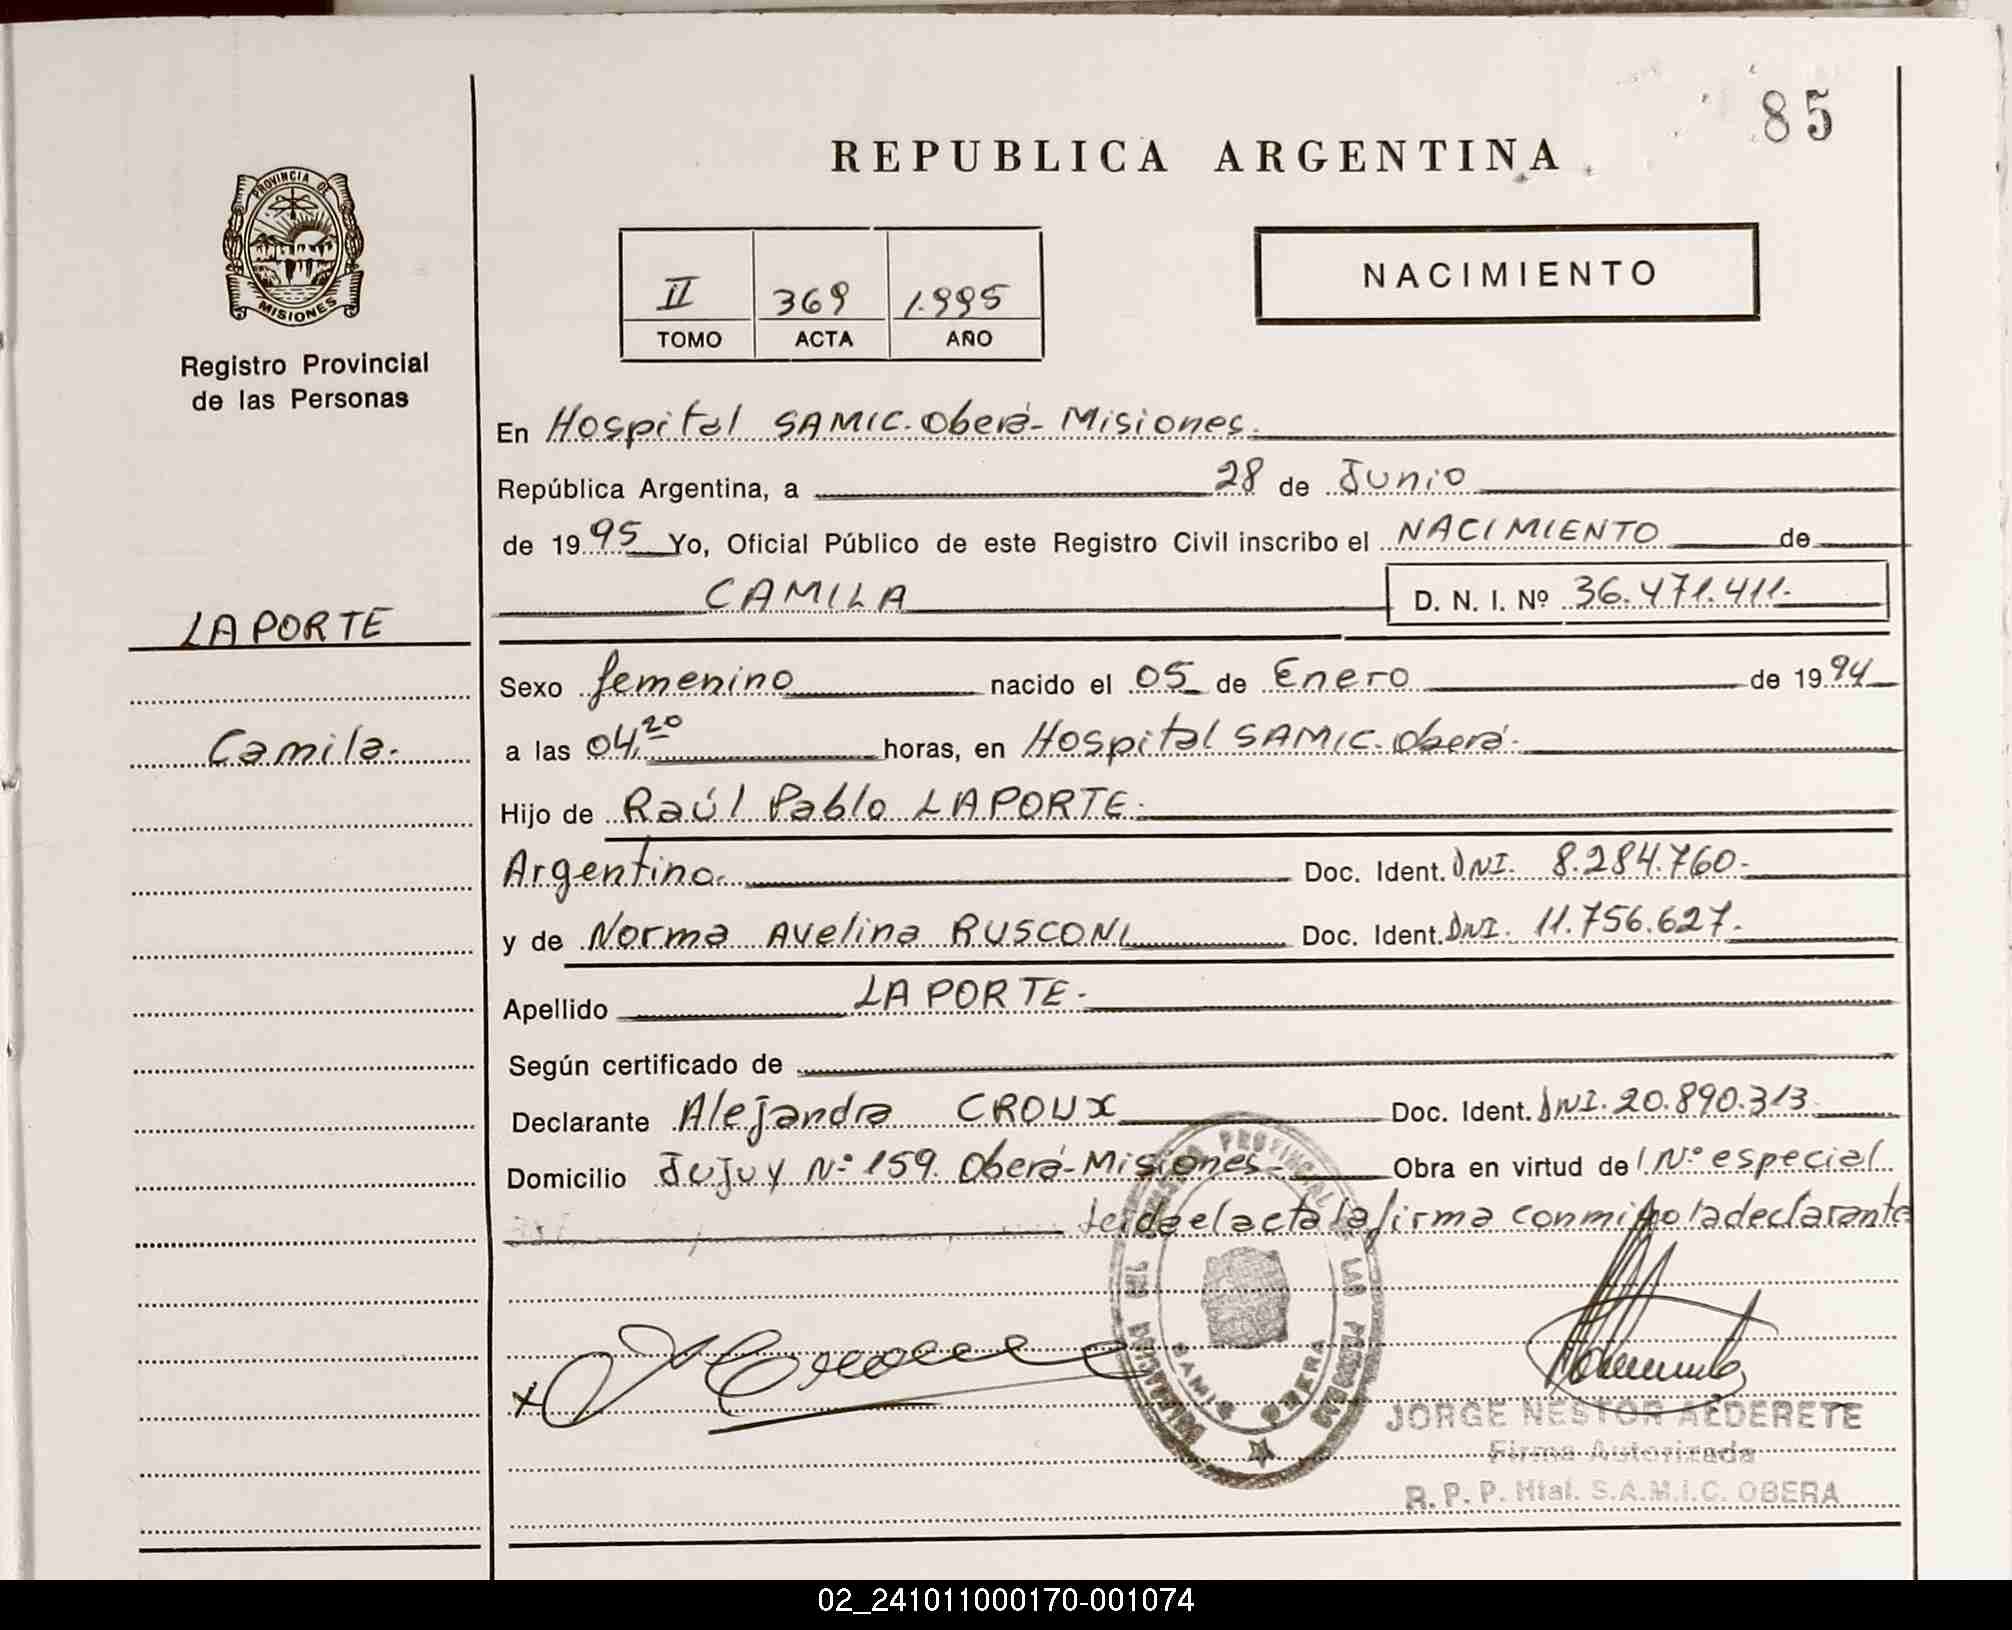 85
REPUBLICA ARGENTINA
PROVINCIA DE
MISIONES
Registro Provincial
de las Personas
II 369 1.995
TOMO ACTA AÑO
NACIMIENTO
En Hospital SAMIC. Oberá - Misiones.
República Argentina, a 28 de Junio
de 1995 Yo, Oficial Público de este Registro Civil inscribo el NACIMIENTO de
CAMILA D. N. I. Nº 36.471.411.-
LAPORTE
Sexo femenino nacido el 05 de Enero de 1994
Camila.
a las 04,20 horas, en Hospital SAMIC. Oberá.
Hijo de Raúl Pablo LAPORTE.
Argentino. Doc. Ident. DNI. 8.284.760-
y de Norma Avelina RUSCONI Doc. Ident. DNI. 11.756.627.
Apellido LAPORTE.
Según certificado de
Declarante Alejandra CROUX Doc. Ident. DNI. 20.890.313
Domicilio Jujuy Nº 159. Oberá - Misiones Obra en virtud de I Nº especial
leida el acta la firma conmigo la declarante
PROVINCIAL DE LAS PERSONAS
SAMIC OBERA
JORGE NESTOR ALDERETE
Firma Autorizada
R. P. P. Htal. S.A.M.I.C. OBERA
02_241011000170-001074